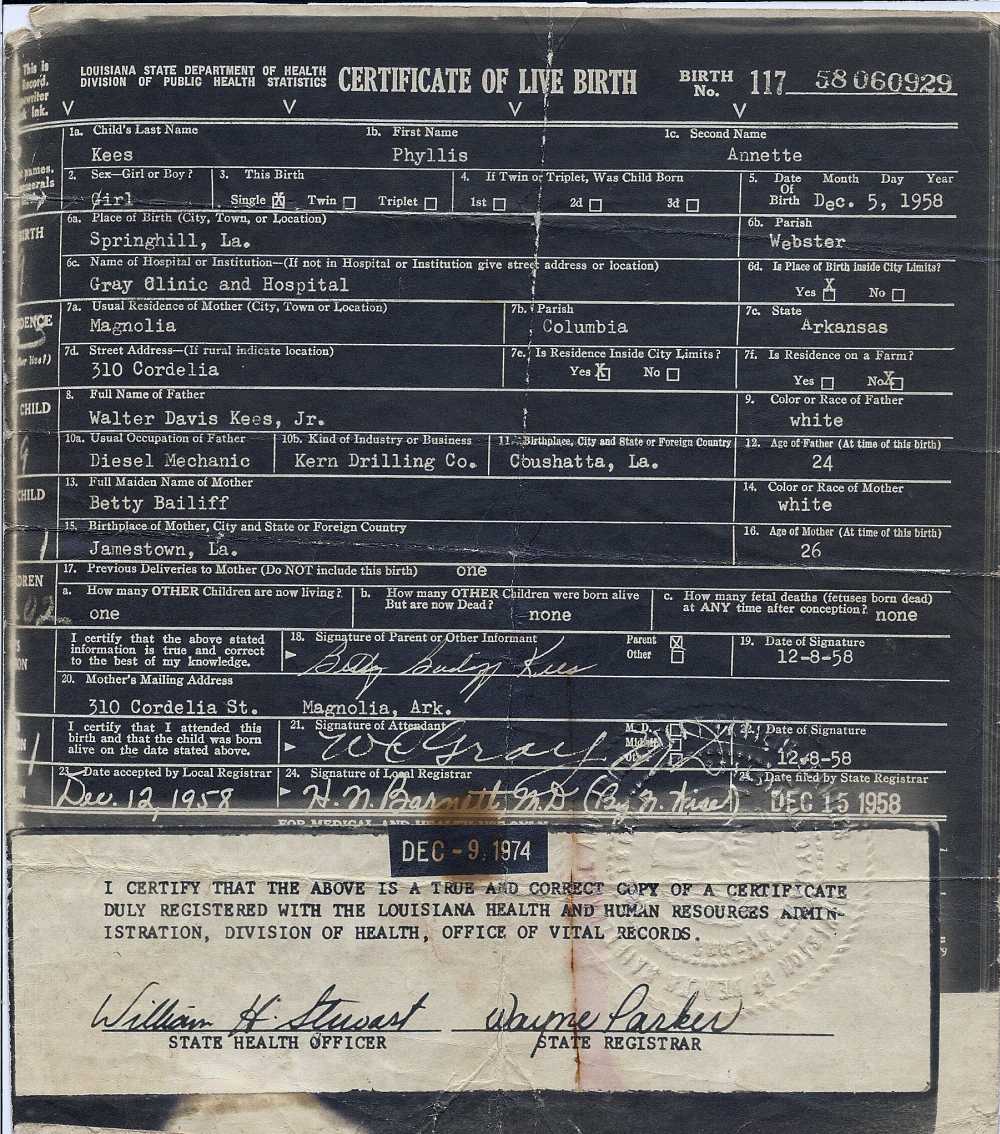 This is
Record.
ink.
LOUISIANA STATE DEPARTMENT OF HEALTH
DIVISION OF PUBLIC HEALTH STATISTICS
CERTIFICATE OF LIVE BIRTH
BIRTH No. 117 58 060929
1a. Child's Last Name 1b. First Name 1c. Second Name
Kees Phyllis Annette
names.
2. Sex—Girl or Boy? 3. This Birth 4. If Twin or Triplet, Was Child Born 5. Date Of Birth Month Day Year
Girl Single X Twin Triplet 1st 2d 3d Dec. 5, 1958
6a. Place of Birth (City, Town, or Location) 6b. Parish
Springhill, La. Webster
6c. Name of Hospital or Institution—(If not in Hospital or Institution give street address or location) 6d. Is Place of Birth inside City Limits?
Gray Clinic and Hospital Yes X No
7a. Usual Residence of Mother (City, Town or Location) 7b. Parish 7c. State
Magnolia Columbia Arkansas
7d. Street Address—(If rural indicate location) 7e. Is Residence Inside City Limits? 7f. Is Residence on a Farm?
310 Cordelia Yes X No Yes No X
CHILD
8. Full Name of Father 9. Color or Race of Father
Walter Davis Kees, Jr. white
10a. Usual Occupation of Father 10b. Kind of Industry or Business 11. Birthplace, City and State or Foreign Country 12. Age of Father (At time of this birth)
Diesel Mechanic Kern Drilling Co. Coushatta, La. 24
CHILD
13. Full Maiden Name of Mother 14. Color or Race of Mother
Betty Bailiff white
15. Birthplace of Mother, City and State or Foreign Country 16. Age of Mother (At time of this birth)
Jamestown, La. 26
17. Previous Deliveries to Mother (Do NOT include this birth) one
a. How many OTHER Children are now living? b. How many OTHER Children were born alive But are now Dead? c. How many fetal deaths (fetuses born dead) at ANY time after conception?
one none none
I certify that the above stated
information is true and correct
to the best of my knowledge.
18. Signature of Parent or Other Informant Parent X Other 19. Date of Signature
Betty Bailiff Kees 12-8-58
20. Mother's Mailing Address
310 Cordelia St. Magnolia, Ark.
I certify that I attended this
birth and that the child was born
alive on the date stated above.
21. Signature of Attendant M.D. 22. Date of Signature
W C Gray 12-8-58
23. Date accepted by Local Registrar 24. Signature of Local Registrar 25. Date filed by State Registrar
Dec. 12, 1958 H. N. Barnett, MD (By N. Wise) DEC 15 1958
DEC -9. 1974
I CERTIFY THAT THE ABOVE IS A TRUE AND CORRECT COPY OF A CERTIFICATE
DULY REGISTERED WITH THE LOUISIANA HEALTH AND HUMAN RESOURCES ADMIN-
ISTRATION, DIVISION OF HEALTH, OFFICE OF VITAL RECORDS.
William H. Stewart Wayne Parker
STATE HEALTH OFFICER STATE REGISTRAR